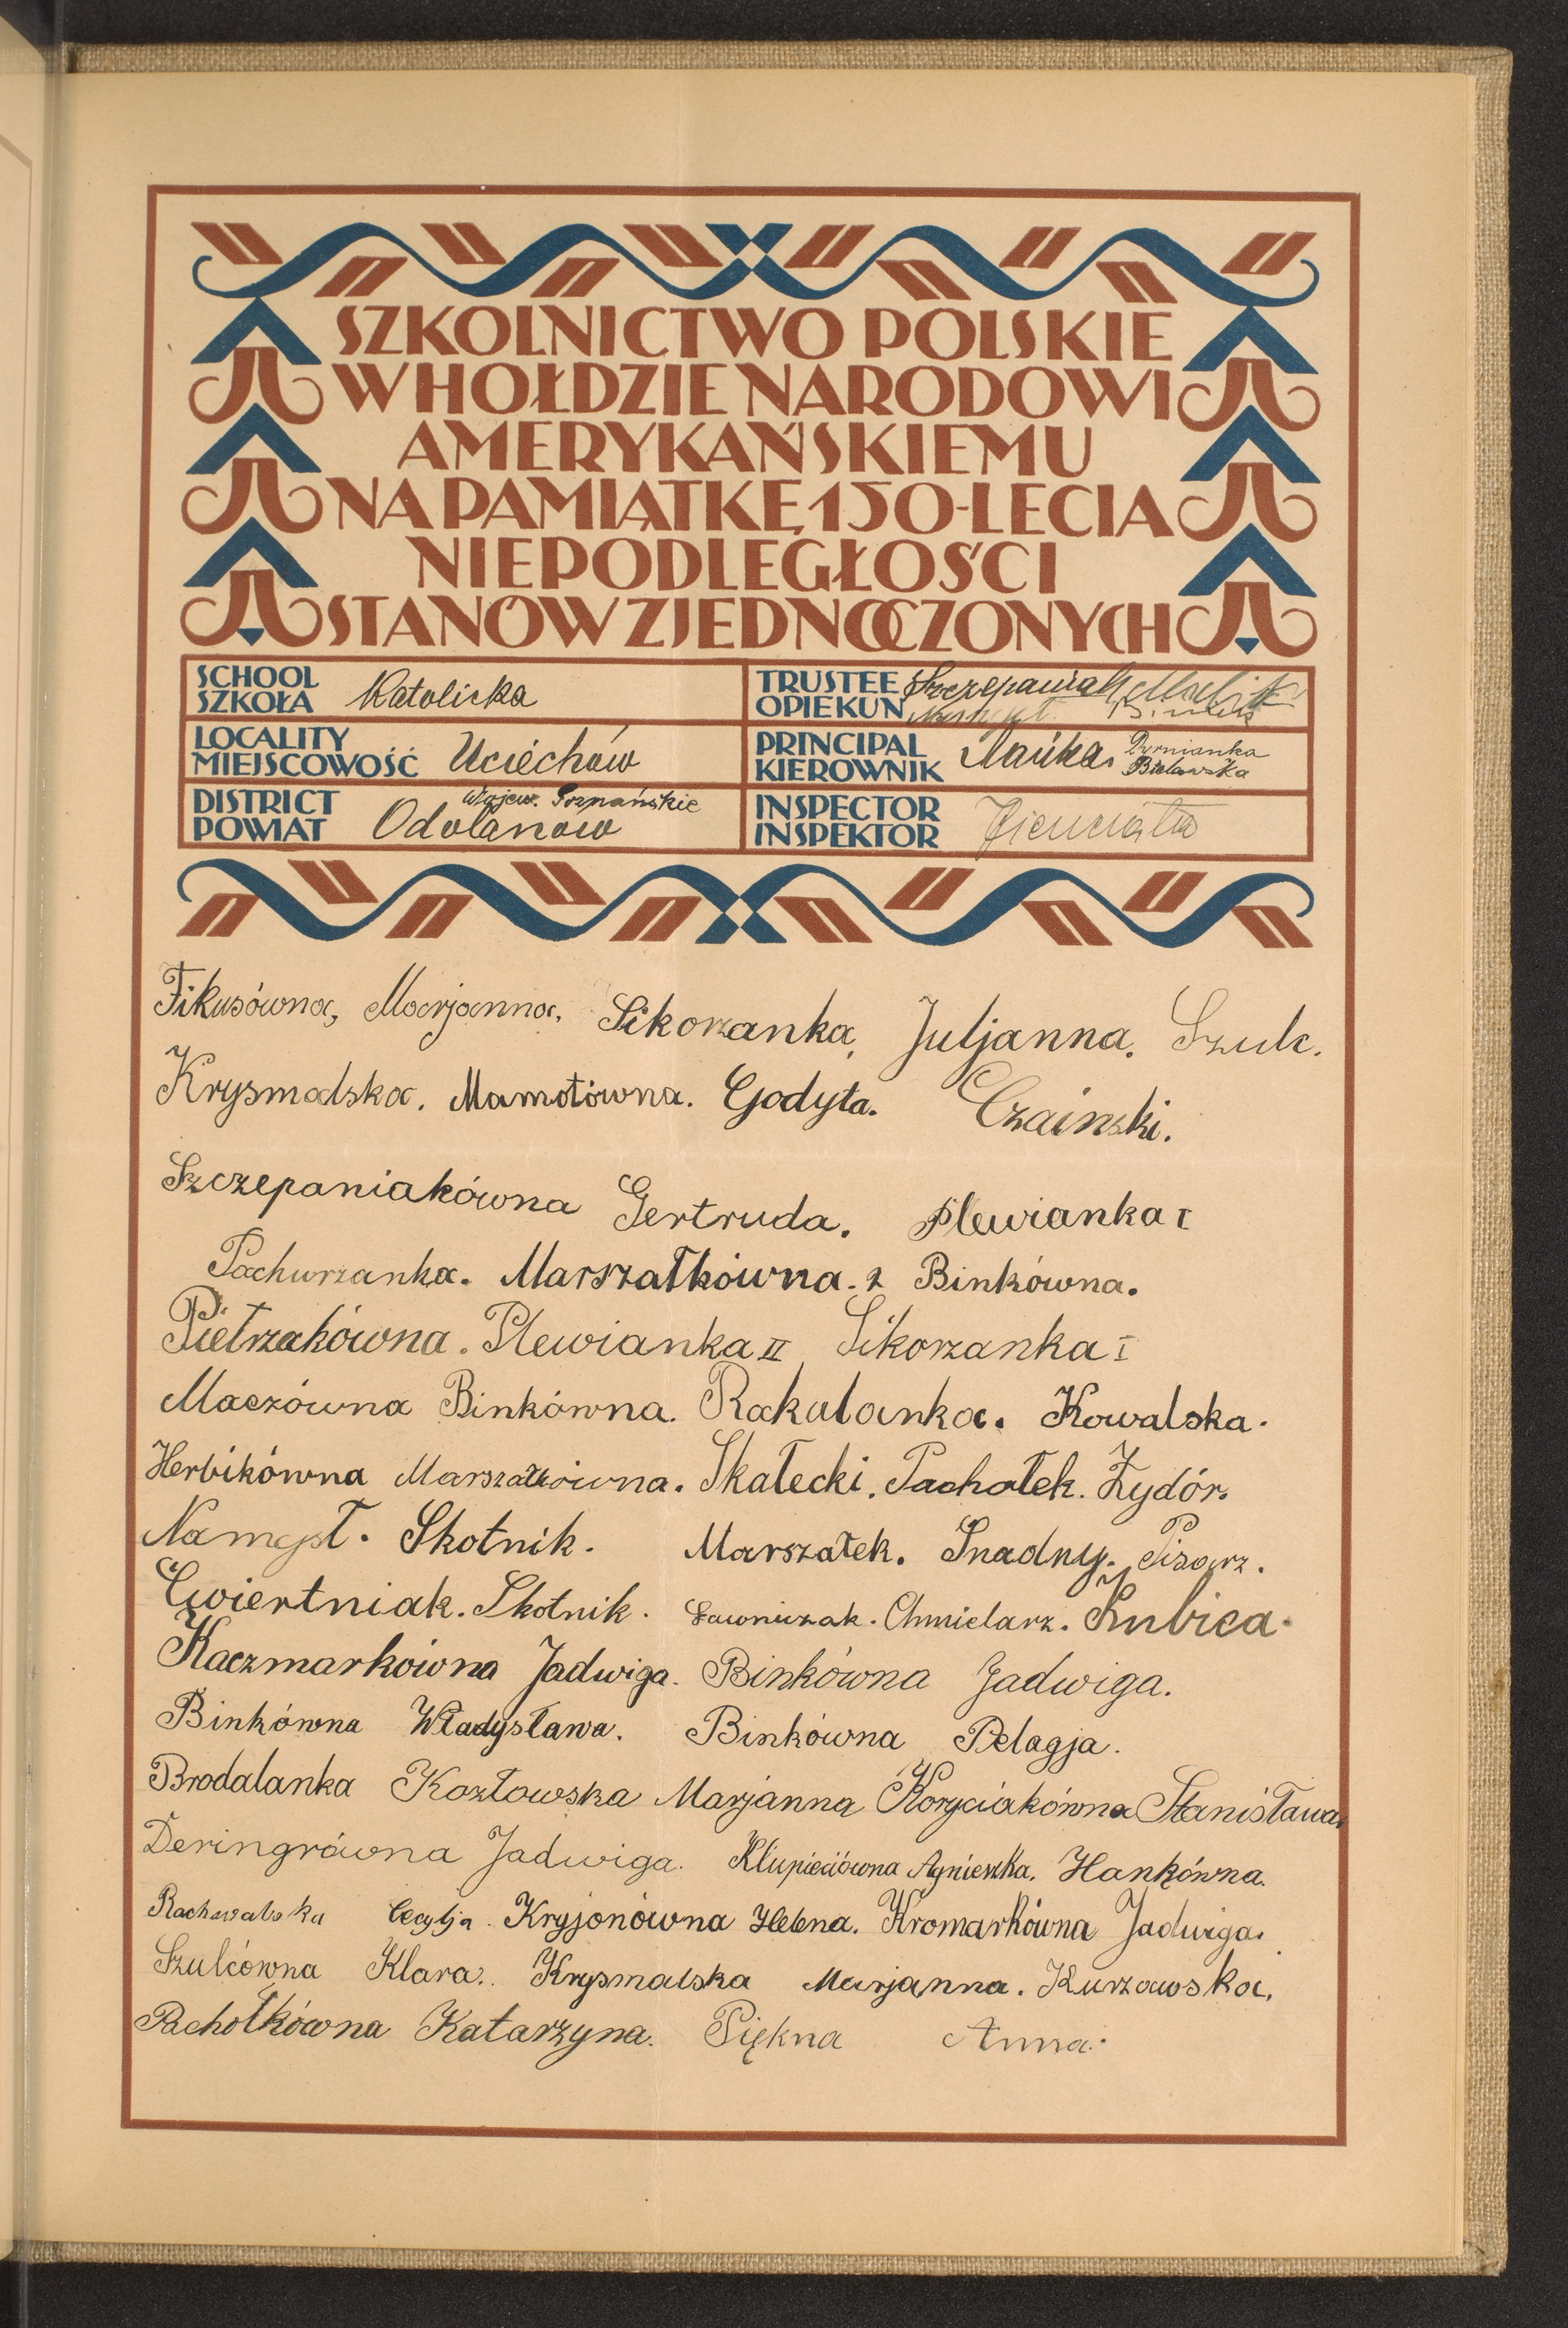 SZKOLNICTWO POLSKIE
W HOŁDZIE NARODOWI
AMERYKAŃSKIEMU
NA PAMIĄTKĘ 150-LECIA
NIEPODLEGŁOŚCI
STANÓW ZJEDNOCZONYCH
SCHOOL SZKOŁA Katolicka
TRUSTEE OPIEKUN Szczepaniak
LOCALITY MIEJSCOWOŚĆ Uciechów
PRINCIPAL KIEROWNIK Bielawska
DISTRICT POWIAT Wojew. Poznańskie Odolanów
INSPECTOR INSPEKTOR
Fikusówna, Marjanna. Sikorzanka, Juljanna. Szulc.
Krysmalska. Mamotówna. Godyta. Czainski.
Szczepaniakówna Gertruda. Plewianka I
Pachurzanka. Marszałkówna. 2 Binkówna.
Pietrzakówna. Plewianka II Sikorzanka I
Maczówna Binkówna. Rakulanka. Kowalska.
Herbikówna Marszałkówna. Skałecki. Pachołek. Żydór.
Namysł. Skotnik. Marszałek. Snadny. Pisarz.
Ćwiertniak. Skotnik. Ławniczak. Chmielarz. Kubica.
Kaczmarkówna Jadwiga. Binkówna Jadwiga.
Binkówna Władysława. Binkówna Pelagja.
Brodalanka Kozłowska Marjanna Koryciakówna Stanisława.
Deringrówna Jadwiga. Klupieciówna Agnieszka. Hankówna.
Rachwalska Cecylja. Kryjonówna Helena. Kromarkówna Jadwiga.
Szulcówna Klara. Krysmalska Marjanna. Kurzawska.
Pachołkówna Katarzyna. Piękna Anna.